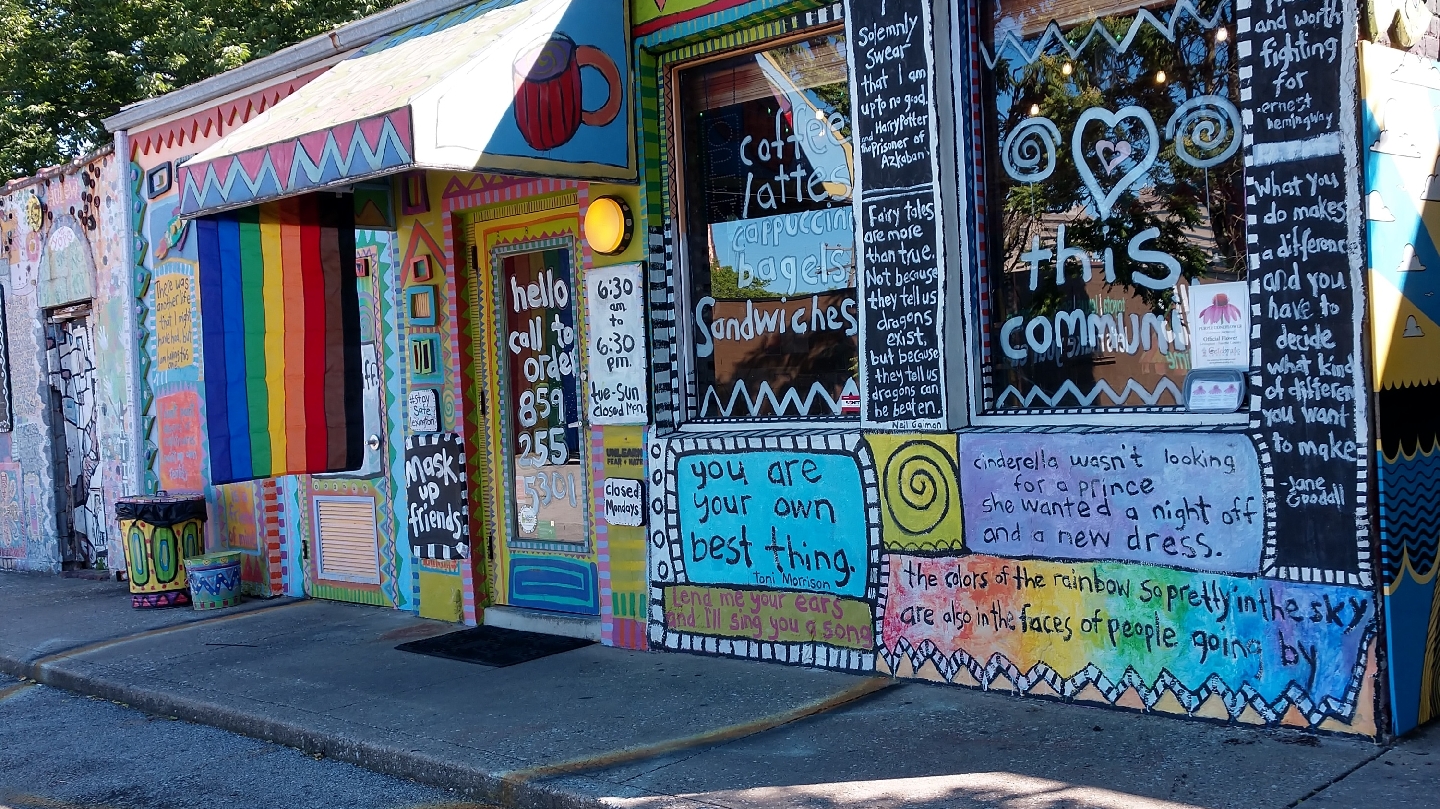 There was
another life
that I might
have had, but
I am having this
#stay
safe
mask
up
friends
hello
call to
order
859
255
5301
6:30
am
to
6:30
pm.
tue-Sun
closed Mon.
UNLEARN
FEAR + HATE
closed
Mondays
coffee
lattes
cappuccino
bagels
Sandwiches
I
Solemnly
Swear
that I am
up to no good.
Harry Potter
Prisoner of
Azkaban
Fairy tales
are more
than true.
Not because
they tell us
dragons
exist,
but because
they tell us
dragons can
be beaten.
Neil Gaiman
this
communi
and worth
fighting
for
-ernest
hemingway
What you
do makes
a differenc
and you
have to
decide
what kind
of differen
you want
to make
-Jane
Goodall
you are
your own
best thing.
Toni Morrison
Lend me your ears
and I'll sing you a song
cinderella wasn't looking
for a prince
she wanted a night off
and a new dress.
the colors of the rainbow so pretty in the sky
are also in the faces of people going by